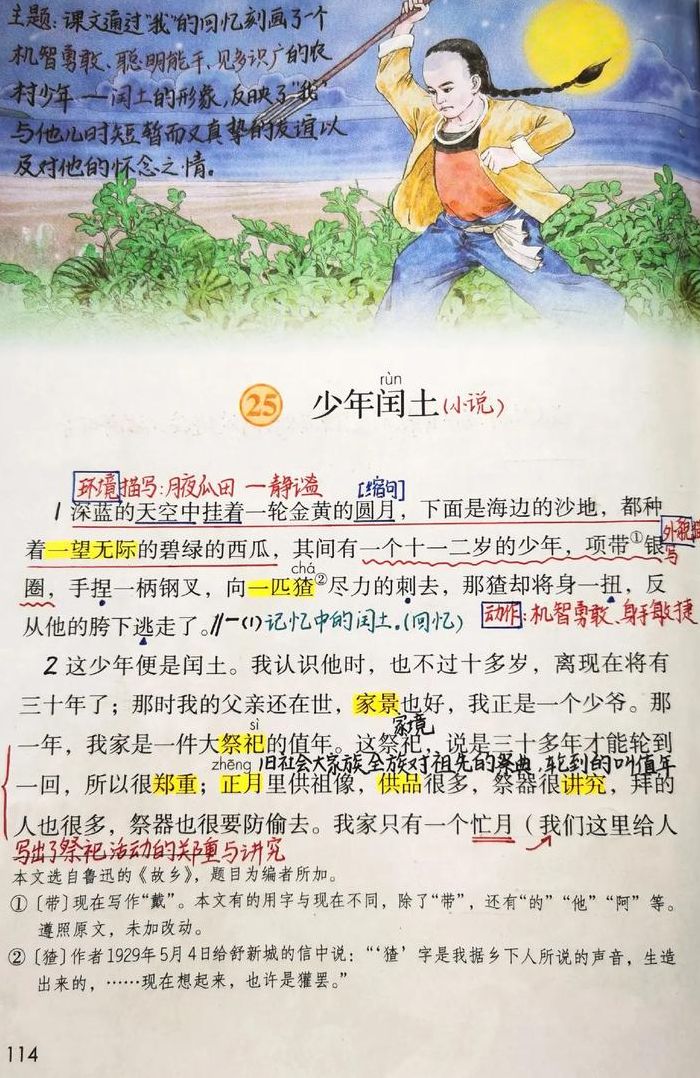 主题:课文通过"我"的回忆刻画了一个
机智勇敢、聪明能干、见多识广的农
村少年——闰土的形象,反映了"我"
与他儿时短暂而又真挚的友谊以
及对他的怀念之情。
rùn
25 少年闰土(小说)
环境描写:月夜瓜田—静谧 [缩句]
1 深蓝的天空中挂着一轮金黄的圆月,下面是海边的沙地,都种
外貌描写
着一望无际的碧绿的西瓜,其间有一个十一二岁的少年,项带①银
chá
圈,手捏一柄钢叉,向一匹猹②尽力的刺去,那猹却将身一扭,反
从他的胯下逃走了。//一(1)记忆中的闰土.(回忆) 动作:机智勇敢、身手敏捷
2 这少年便是闰土。我认识他时,也不过十多岁,离现在将有
三十年了;那时我的父亲还在世,家景也好,我正是一个少爷。那
sì 家境
一年,我家是一件大祭祀的值年。这祭祀,说是三十多年才能轮到
zhēng 旧社会大家族全族对祖先的祭典,轮到的叫值年
一回,所以很郑重;正月里供祖像,供品很多,祭器很讲究,拜的
人也很多,祭器也很要防偷去。我家只有一个忙月(我们这里给人
写出了祭祀活动的郑重与讲究
本文选自鲁迅的《故乡》,题目为编者所加。
①〔带〕现在写作“戴”。本文有的用字与现在不同,除了“带”,还有“的”“他”“阿”等。
遵照原文,未加改动。
②〔猹〕作者1929年5月4日给舒新城的信中说:“‘猹’字是我据乡下人所说的声音,生造
出来的,……现在想起来,也许是獾罢。”
114